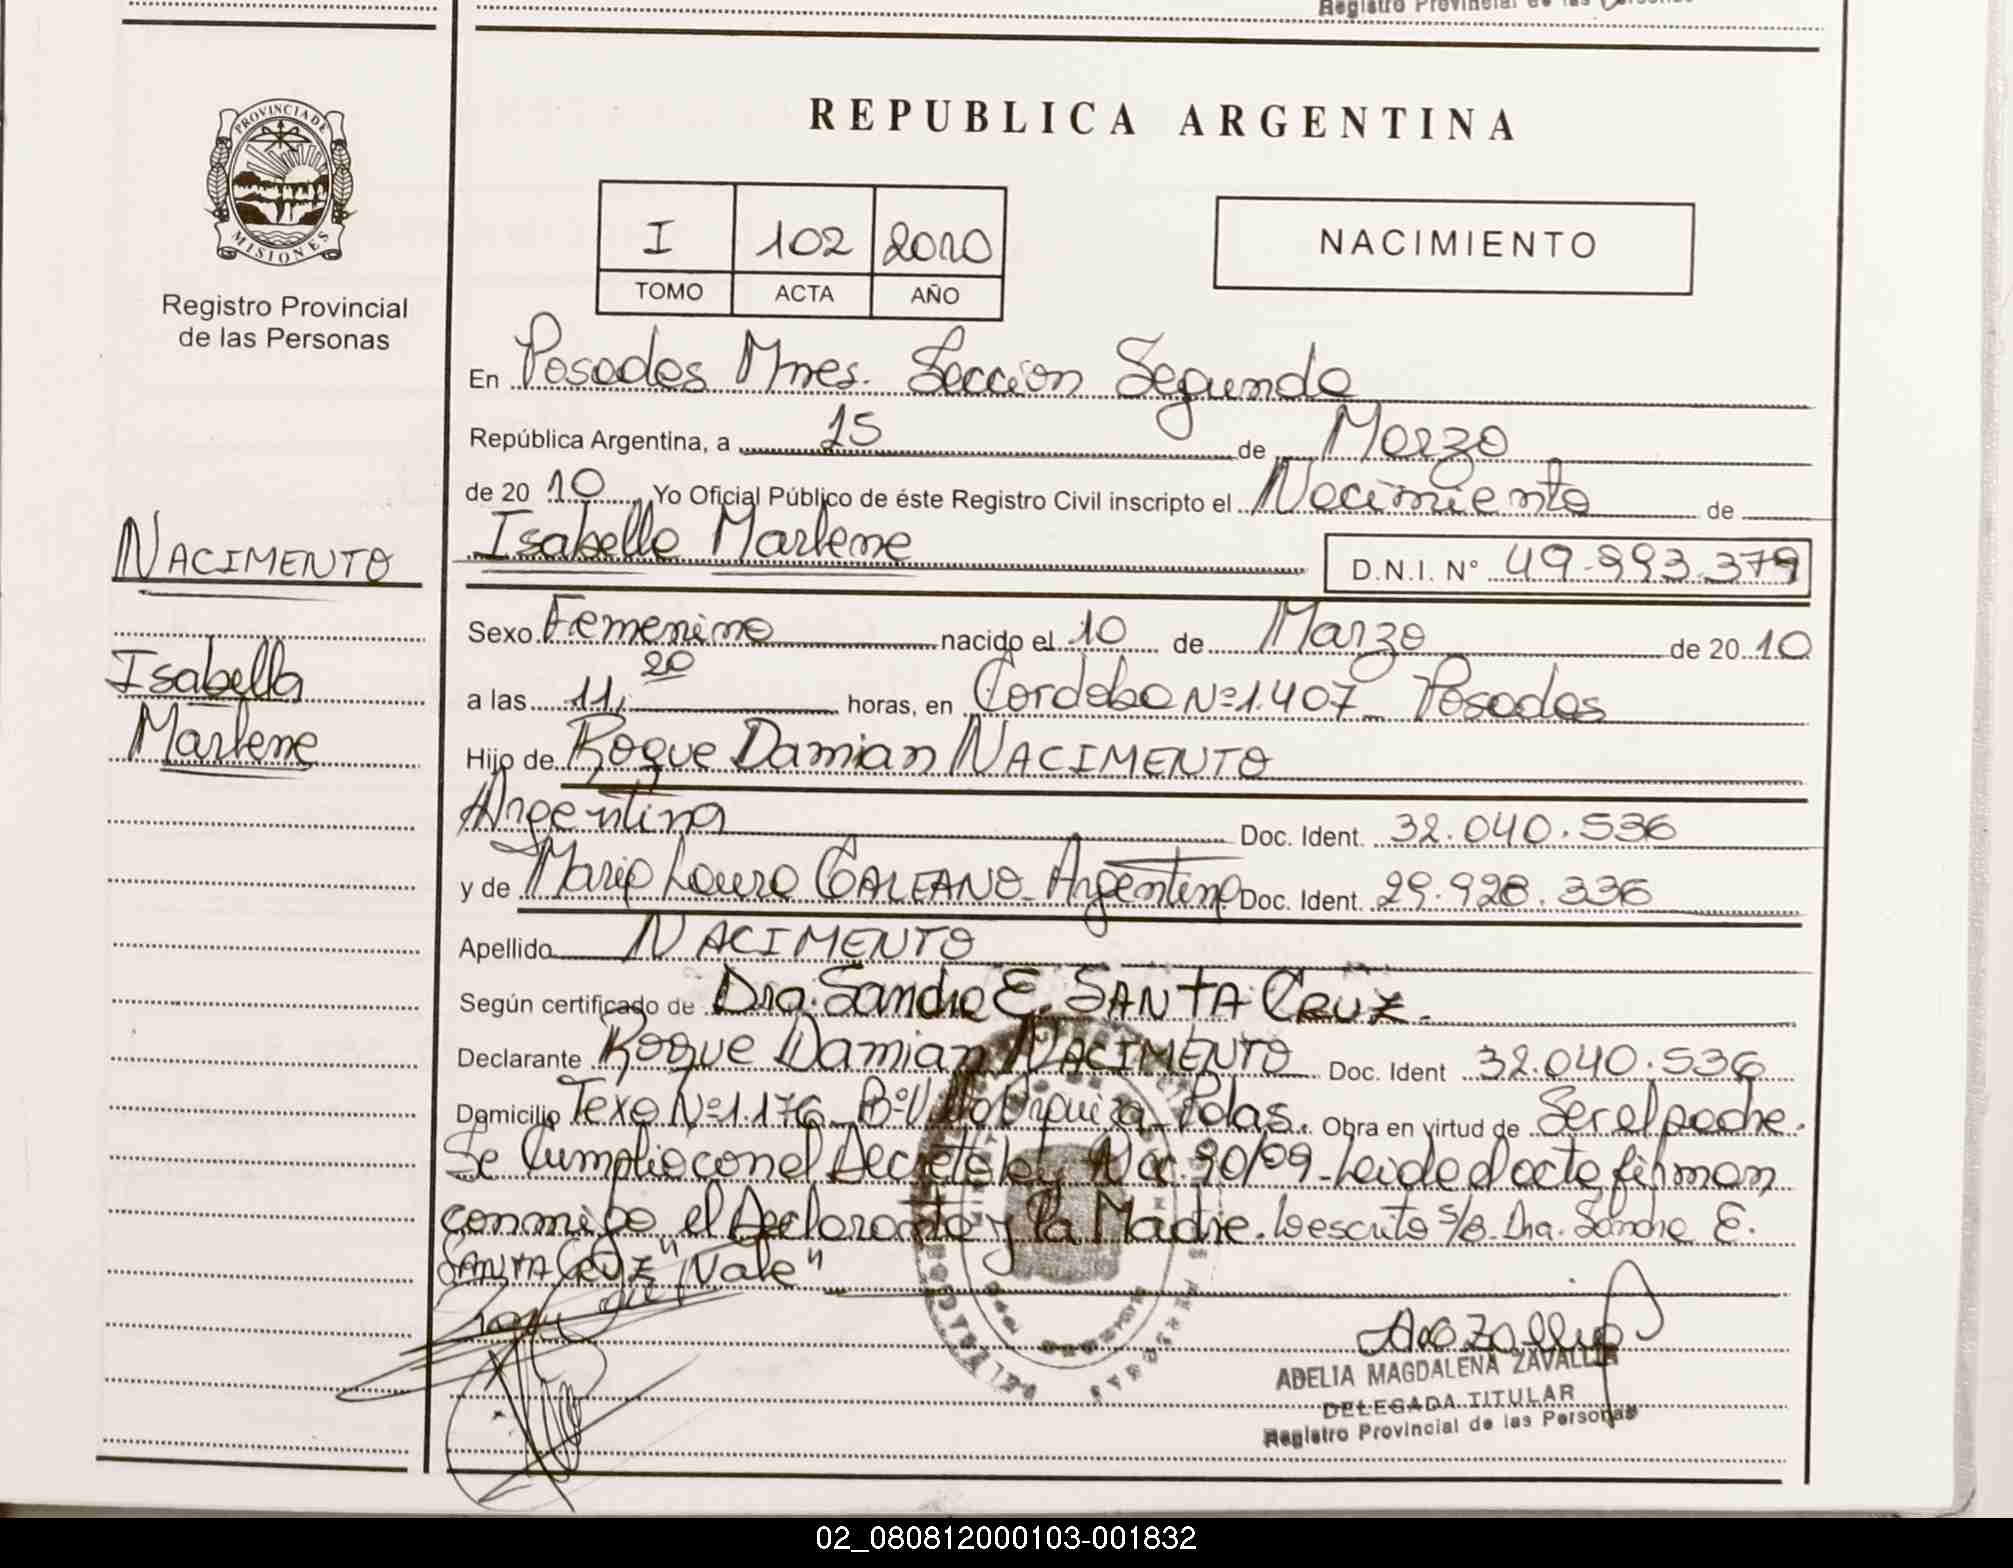 Registro Provincial de las Personas
REPUBLICA ARGENTINA
PROVINCIA DE
MISIONES
Registro Provincial
de las Personas
I 102 2010
TOMO ACTA AÑO
NACIMIENTO
En Posadas Mnes. Sección Segunda
República Argentina, a 15 de Marzo
de 20 10 Yo Oficial Público de éste Registro Civil inscripto el Nacimiento de
Isabella Marlene D.N.I. Nº 49.993.379
NACIMENTO
Isabella
Marlene
Sexo Femenino nacido el 10 de Marzo de 20 10
a las 11,20 horas, en Cordoba Nº 1.407 - Posadas
Hijo de Roque Damian NACIMENTO
Argentina Doc. Ident. 32.040.536
y de Maria Laura GALEANO - Argentina Doc. Ident. 29.928.336
Apellido NACIMENTO
Según certificado de Dra. Sandra E. SANTA CRUZ.
Declarante Roque Damian NACIMENTO Doc. Ident 32.040.536
Domicilio Texo Nº 1.176 - Bº Villa Urquiza - Pdas. Obra en virtud de Ser el padre.
Se Cumplio con el Decreto ley 90/09 - Leida el acta firman
conmigo el Declarante y la Madre. Lo escrito s/B. Dra. Sandra E.
SANTA CRUZ" "Vale"
ADELIA MAGDALENA ZAVALLIA
DELEGADA TITULAR
Registro Provincial de las Personas
02_080812000103-001832